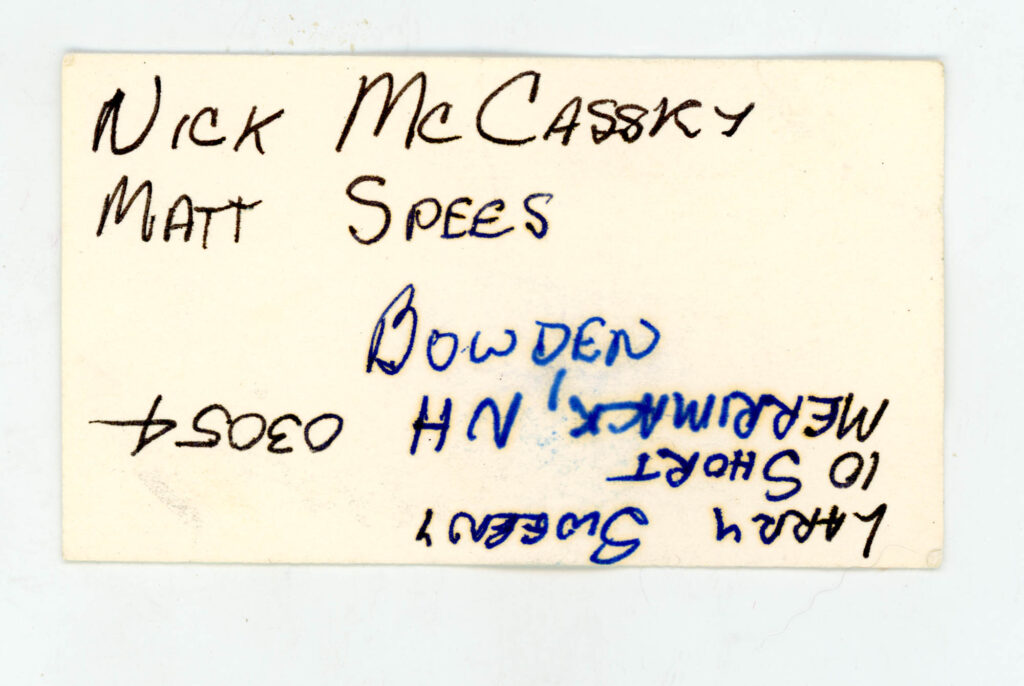 Nick McCassky
Matt Spees
Bowden
Larry Sweeny
10 Short
Merrimack, NH 03054